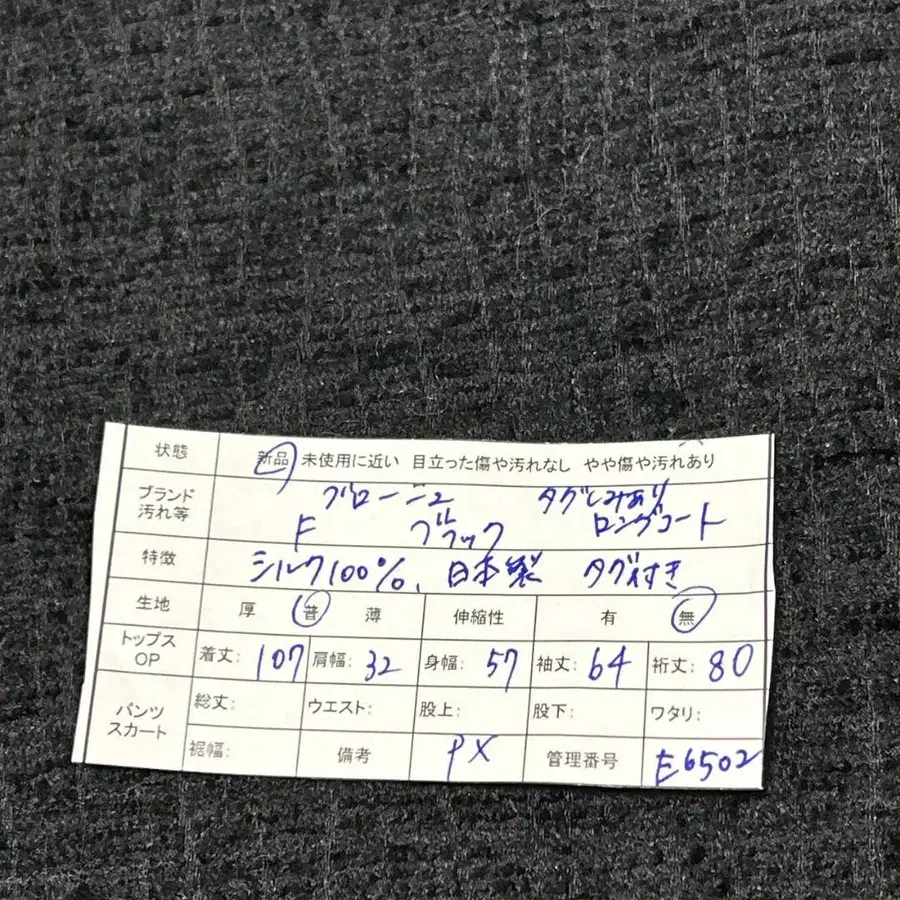 状態 新品 未使用に近い 目立った傷や汚れなし やや傷や汚れあり
ブランド 汚れ等 グローニュ タグしみあり
F ブラック ロングコート
特徴 シルク100%、日本製 タグ付き
生地 厚 普 薄 伸縮性 有 無
トップス OP 着丈: 107 肩幅: 32 身幅: 57 袖丈: 64 裄丈: 80
パンツ スカート 総丈: ウエスト: 股上: 股下: ワタリ:
裾幅: 備考 PX 管理番号 E6502